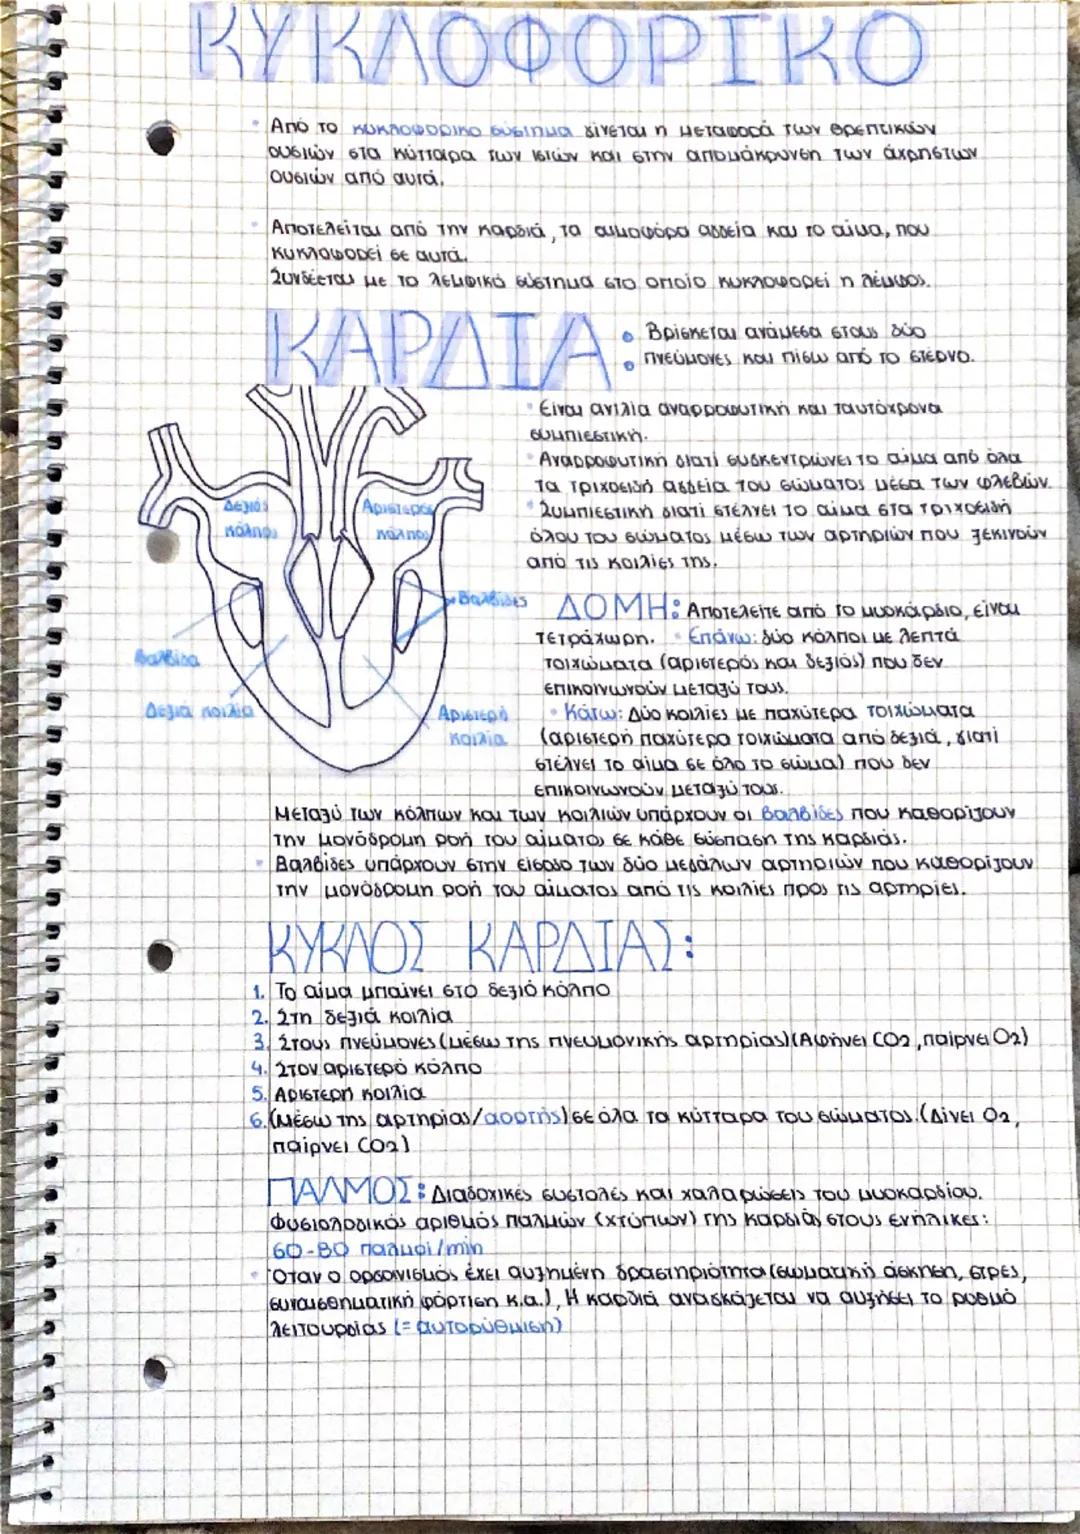 ΚΥΚΛΟΦΟΡΙΚΟ
• Από το κυκλοφορικό σύστημα γίνεται η μεταφορά των θρεπτικών
ουσιών στα κύτταρα των ιστών και στην απομάκρυνση των άχρηστων
ουσιών από αυτά.
• Αποτελείται από την καρδιά, τα αιμοφόρα αγγεία και το αίμα, που
κυκλοφορεί σε αυτά.
Συνδέεται με το λεμφικό σύστημα στο οποίο κυκλοφορεί η λέμφος.
ΚΑΡΔΙΑ:
• Βρίσκεται ανάμεσα στους δύο
• πνεύμονες και πίσω από το στέρνο.
• Είναι αντλία αναρροφωτική και ταυτόχρονα
συμπιεστική.
• Αναρροφωτική διατί συγκεντρώνει το αίμα από όλα
τα τριχοειδή αγγεία του σώματος μέσα των φλεβών.
• Συμπιεστική διατί στέλνει το αίμα στα τριχοειδή
όλου του σώματος μέσω των αρτηριών που ξεκινούν
από τις κοιλίες της.
Δεξιός
κόλπος
Αριστερός
κόλπος
Βαλβίδες
Βαλβίδα
Δεξιά κοιλία
Αριστερή
κοιλία
ΔΟΜΗ: Αποτελείτε από το μυοκάρδιο, είναι
τετράχωρη. • Επάνω: δύο κόλποι με λεπτά
τοιχώματα (αριστερός και δεξιός) που δεν
επικοινωνούν μεταξύ τους.
• Κάτω: Δύο κοιλίες με παχύτερα τοιχώματα
(αριστερή παχύτερα τοιχώματα από δεξιά, γιατί
στέλνει το αίμα σε όλο το σώμα) που δεν
επικοινωνούν μεταξύ τους.
Μεταξύ των κόλπων και των κοιλιών υπάρχουν οι βαλβίδες που καθορίζουν
την μονόδρομη ροή του αίματος σε κάθε σύσπαση της καρδιάς.
• Βαλβίδες υπάρχουν στην είσοδο των δύο μεγάλων αρτηριών που καθορίζουν
την μονόδρομη ροή του αίματος από τις κοιλίες προς τις αρτηρίες.
ΚΥΚΛΟΣ ΚΑΡΔΙΑΣ:
1. Το αίμα μπαίνει στο δεξιό κόλπο
2. Στη δεξιά κοιλία
3. Στους πνεύμονες (μέσω της πνευμονικής αρτηρίας) (Αφήνει CO2, παίρνει O2)
4. Στον αριστερό κόλπο
5. Αριστερή κοιλία
6. (Μέσω της αρτηρίας/αορτής) σε όλα τα κύτταρα του σώματος. (Δίνει O2,
παίρνει CO2)
ΠΑΛΜΟΣ: Διαδοχικές συστολές και χαλαρώσεις του μυοκαρδίου.
Φυσιολογικός αριθμός παλμών (χτύπων) της καρδιάς στους ενήλικες:
60-80 παλμοί/min
• Όταν ο οργανισμός έχει αυξημένη δραστηριότητα (σωματική άσκηση, στρες,
συναισθηματική φόρτιση κ.α.), Η καρδιά αναγκάζεται να αυξήσει το ρυθμό
λειτουργίας (= αυτορύθμιση)